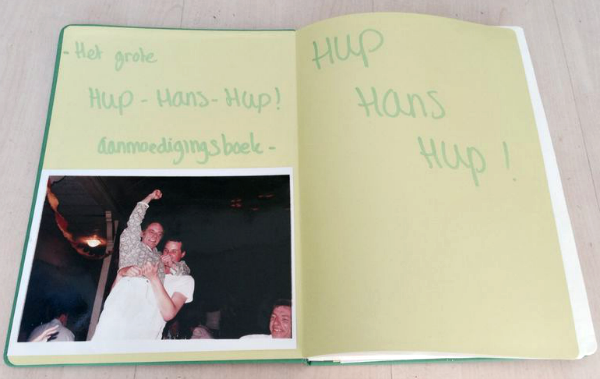 - Het grote
Hup - Hans - Hup!
aanmoedigingsboek -
HUP
Hans
Hup!